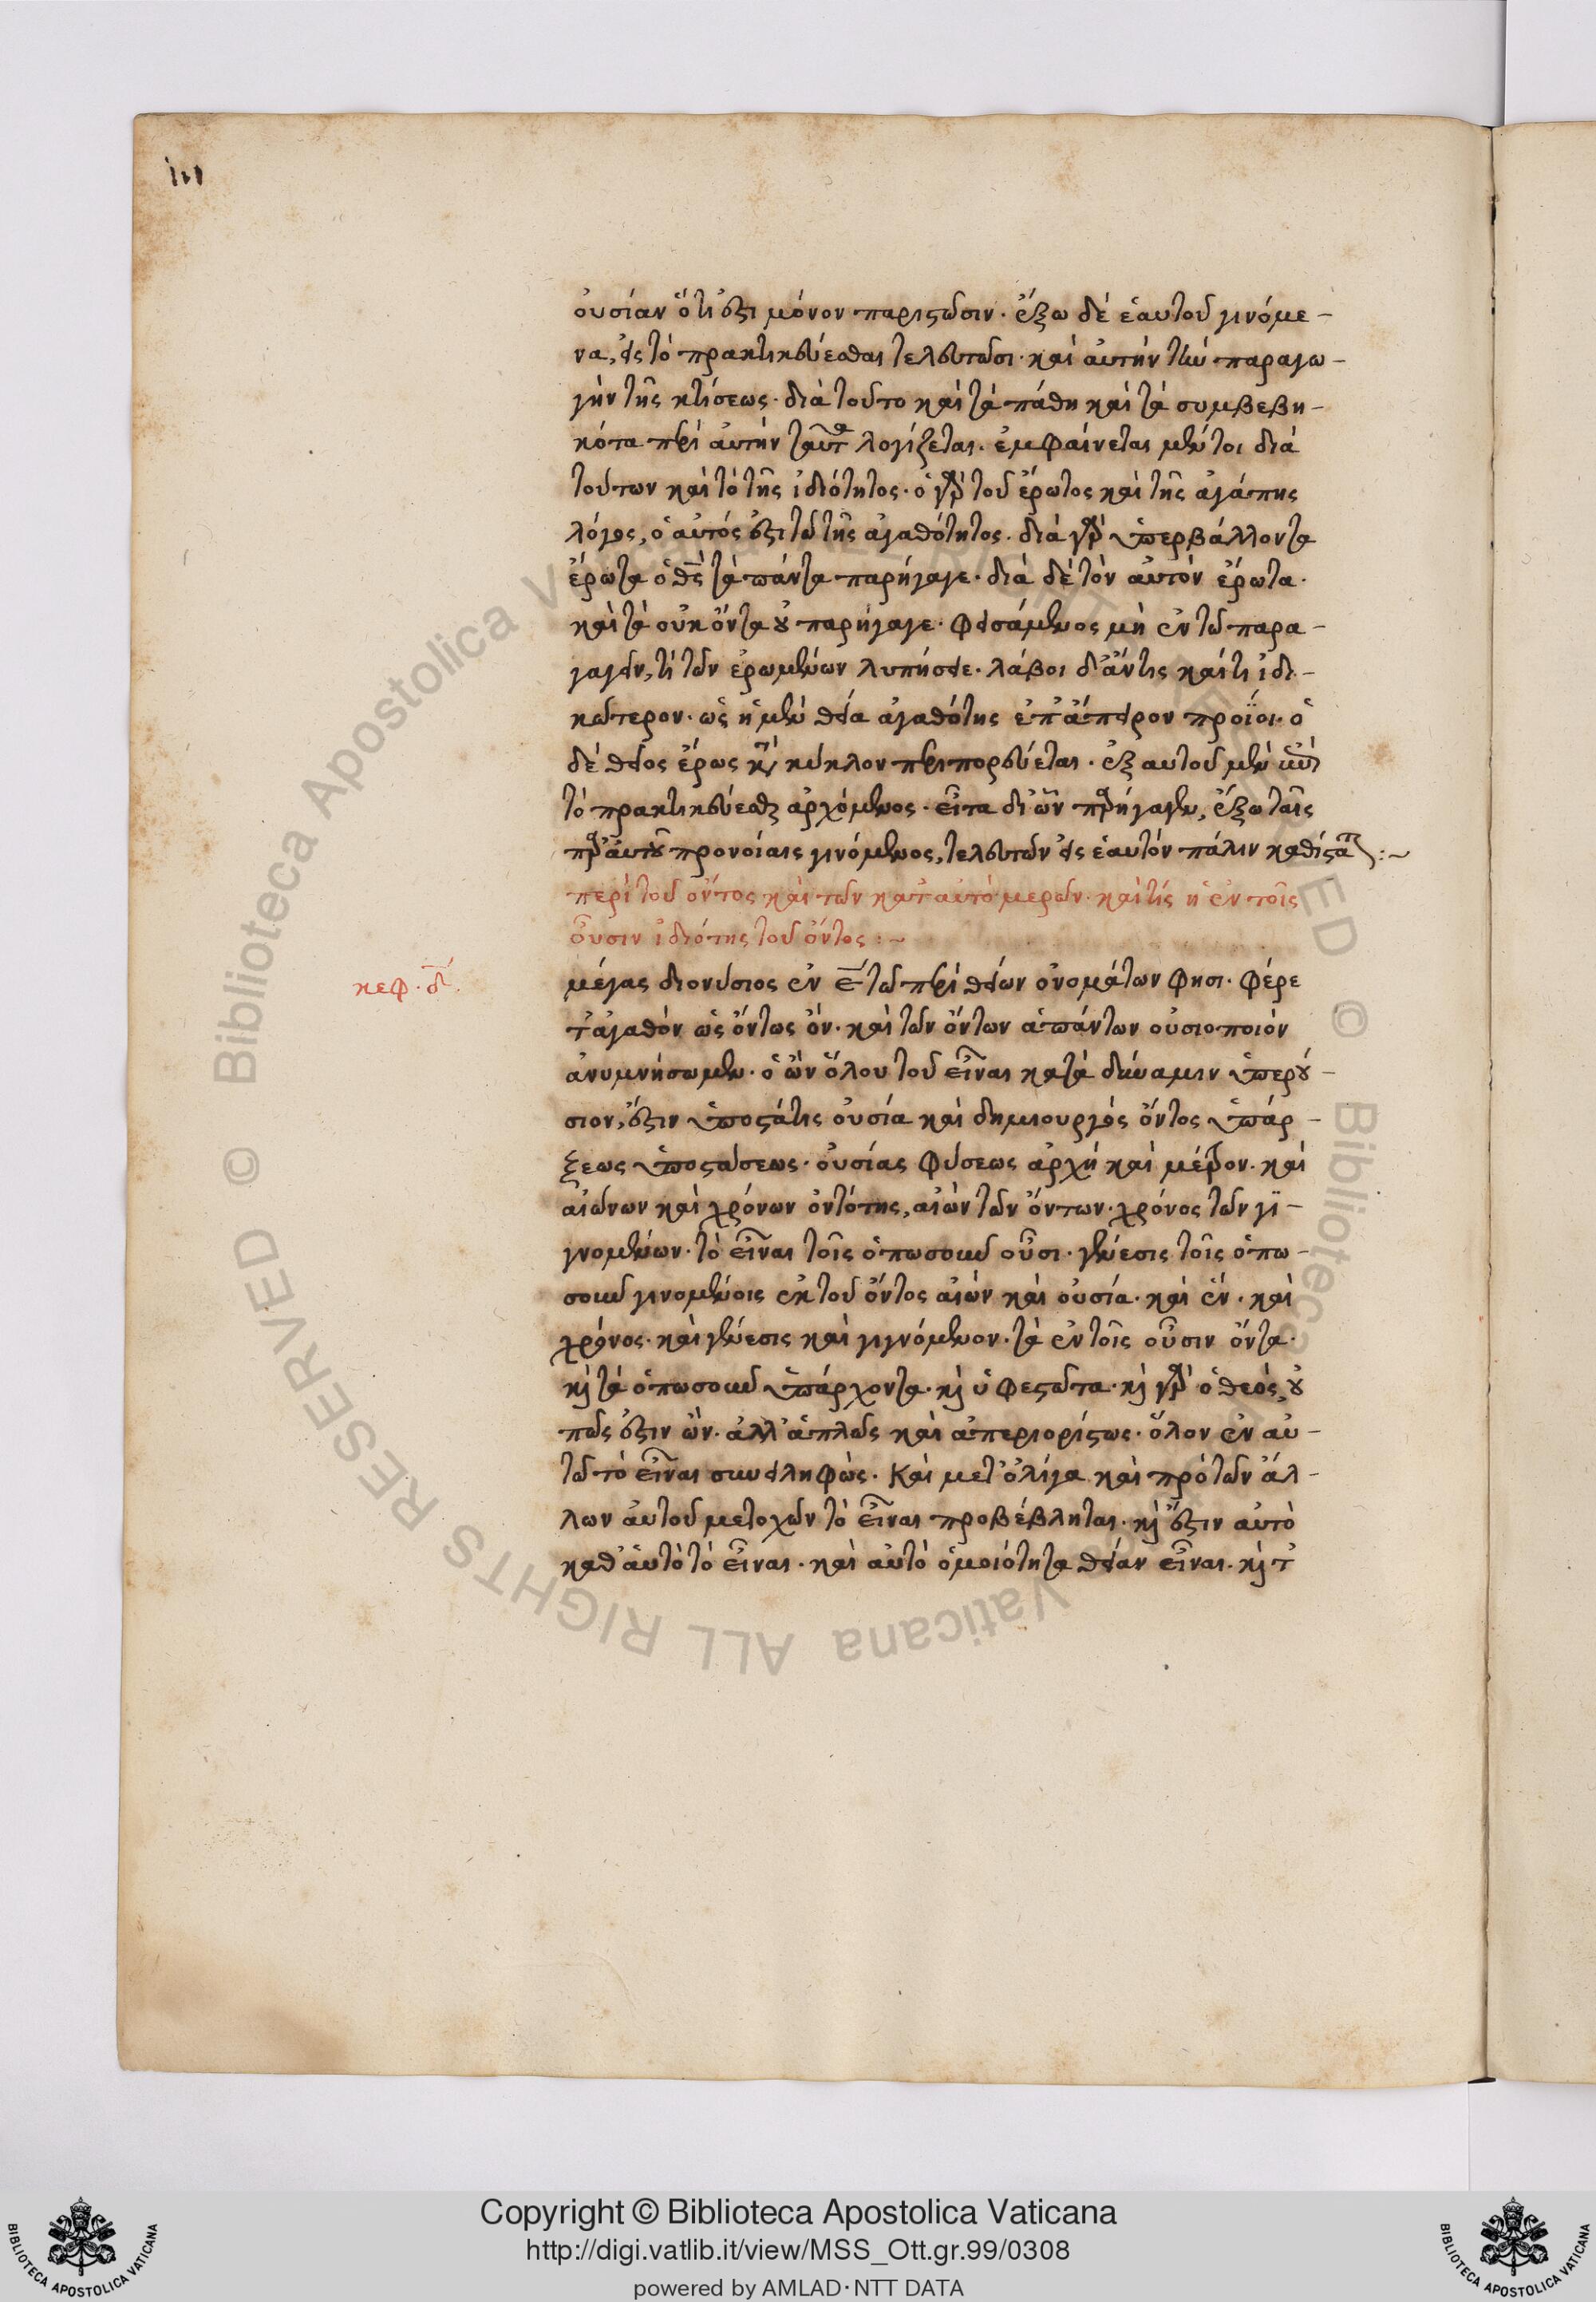 οὐσίαν ὅτι ἐστι μόνον παριστῶσιν· ἔξω δὲ ἑαυτοῦ γινόμε-
να, εἰς τὸ πρακτικεύεσθαι τελευτῶσι· καὶ αὐτὴν τὴν παραγω-
γὴν τῆς κτίσεως· διὰ τοῦτο καὶ τὰ πάθη καὶ τὰ συμβεβη-
κότα περὶ αὐτὴν ταῦτα λογίζεται· ἐμφαίνεται μέντοι διὰ
τούτων καὶ τὸ τῆς ἰδιότητος· ὁ γὰρ τοῦ ἔρωτος καὶ τῆς ἀγάπης
λόγος, ὁ αὐτός ἐστι τῶ τῆς ἀγαθότητος· διὰ γὰρ ὑπερβάλλοντα
ἔρωτα ὁ θς τὰ πάντα παρήγαγε· διὰ δὲ τὸν αὐτὸν ἔρωτα·
καὶ τὰ οὐκ ὄντα οὐ παρήγαγε· φεισάμενος μὴ ἐν τῶ παρα-
γαγεῖν, τὶ τῶν ἐρωμένων λυπήσειε· λάβοι δ' ἄν τις καί τι ἰδι-
κώτερον· ὡς ἡ μὲν θεία ἀγαθότης ἐπ' ἄπειρον προΐοι· ὁ
δὲ θεῖος ἔρως κατὰ κύκλον περιπορεύεται· ἐξ αυτοῦ μὲν
τὸ πρακτικεύεσθαι ἀρχόμενος· εἶτα δι' ὧν παρήγαγεν, ἔξω ταῖς
παρ' αὐτοῦ προνοίαις γινόμενος, τελευτῶν εἰς ἑαυτὸν πάλιν καθίσταται :~
περὶ τοῦ ὄντος καὶ τῶν κατ' αὐτὸ μερῶν· καὶ τίς ἡ ἐν τοῖς
οὖσιν ἰδιότης τοῦ ὄντος :~
κεφ. δ.
μέγας διονύσιος ἐν ε τῶ περὶ θείων ὀνομάτων φησι· φέρε
τἀγαθὸν ὡς ὄντως ὂν· καὶ τῶν ὄντων ἁπάντων οὐσιοποιὸν
ἀνυμνήσωμεν· ὁ ὢν ὅλου τοῦ εἶναι κατὰ δύναμιν ὑπερού-
σιον, ἐστιν ὑποστάτις οὐσία καὶ δημιουργὸς ὄντος ὑπάρ-
ξεως ὑποστάσεως· οὐσίας φύσεως ἀρχὴ καὶ μέτρον· καὶ
αἰώνων καὶ χρόνων ὀντότης, αἰὼν τῶν ὄντων· χρόνος τῶν γι-
γνομένων· τὸ εἶναι τοῖς ὁπωσοῦν οὖσι· γένεσις τοῖς ὁπω-
σοῦν γινομένοις ἐκ τοῦ ὄντος αἰὼν καὶ οὐσία· καὶ ἓν· καὶ
χρόνος· καὶ γένεσις καὶ γιγνόμενον· τὰ ἐν τοῖς οὖσιν ὄντα·
καὶ τὰ ὁπωσοῦν ὑπάρχοντα· καὶ ὑφεστῶτα· καὶ γὰρ ὁ θεὸς, οὐ
πώς ἐστιν ὢν· ἀλλ' ἁπλῶς καὶ ἀπεριορίστως· ὅλον ἐν αὑ-
τῶ τὸ εἶναι συνειληφὼς· Καὶ μετ' ὀλίγα καὶ πρὸ τῶν ἄλ-
λων αὐτοῦ μετοχῶν τὸ εἶναι προβέβληται· καὶ ἔστιν αὐτὸ
καθ' αὑτὸ τὸ εἶναι· καὶ αὐτὸ ὁμοιότητα θείαν εἶναι· καὶ τ
Copyright © Biblioteca Apostolica Vaticana
http://digi.vatlib.it/view/MSS_Ott.gr.99/0308
powered by AMLAD·NTT DATA